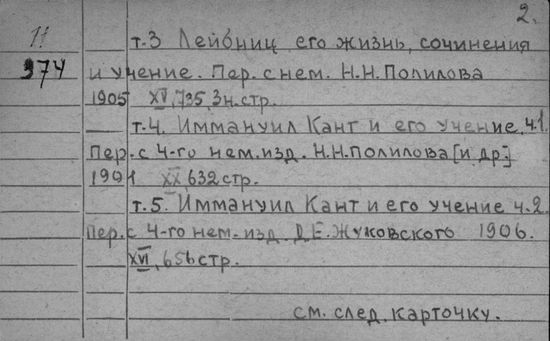 2.
11
974
т.3 Лейбниц его жизнь, сочинения
и учение. Пер. с нем. Н.Н.Полилова
1905 XV, 735, 3н.стр.
т.4. Иммануил Кант и его учение, ч.1.
Пер. с 4-го нем. изд. Н.Н.Полилова [и др.]
1901 XX, 632 стр.
т.5. Иммануил Кант и его учение ч.2.
Пер. с 4-го нем. изд. Д.Е.Жуковского 1906.
XVI, 656 стр.
см. след. карточку.